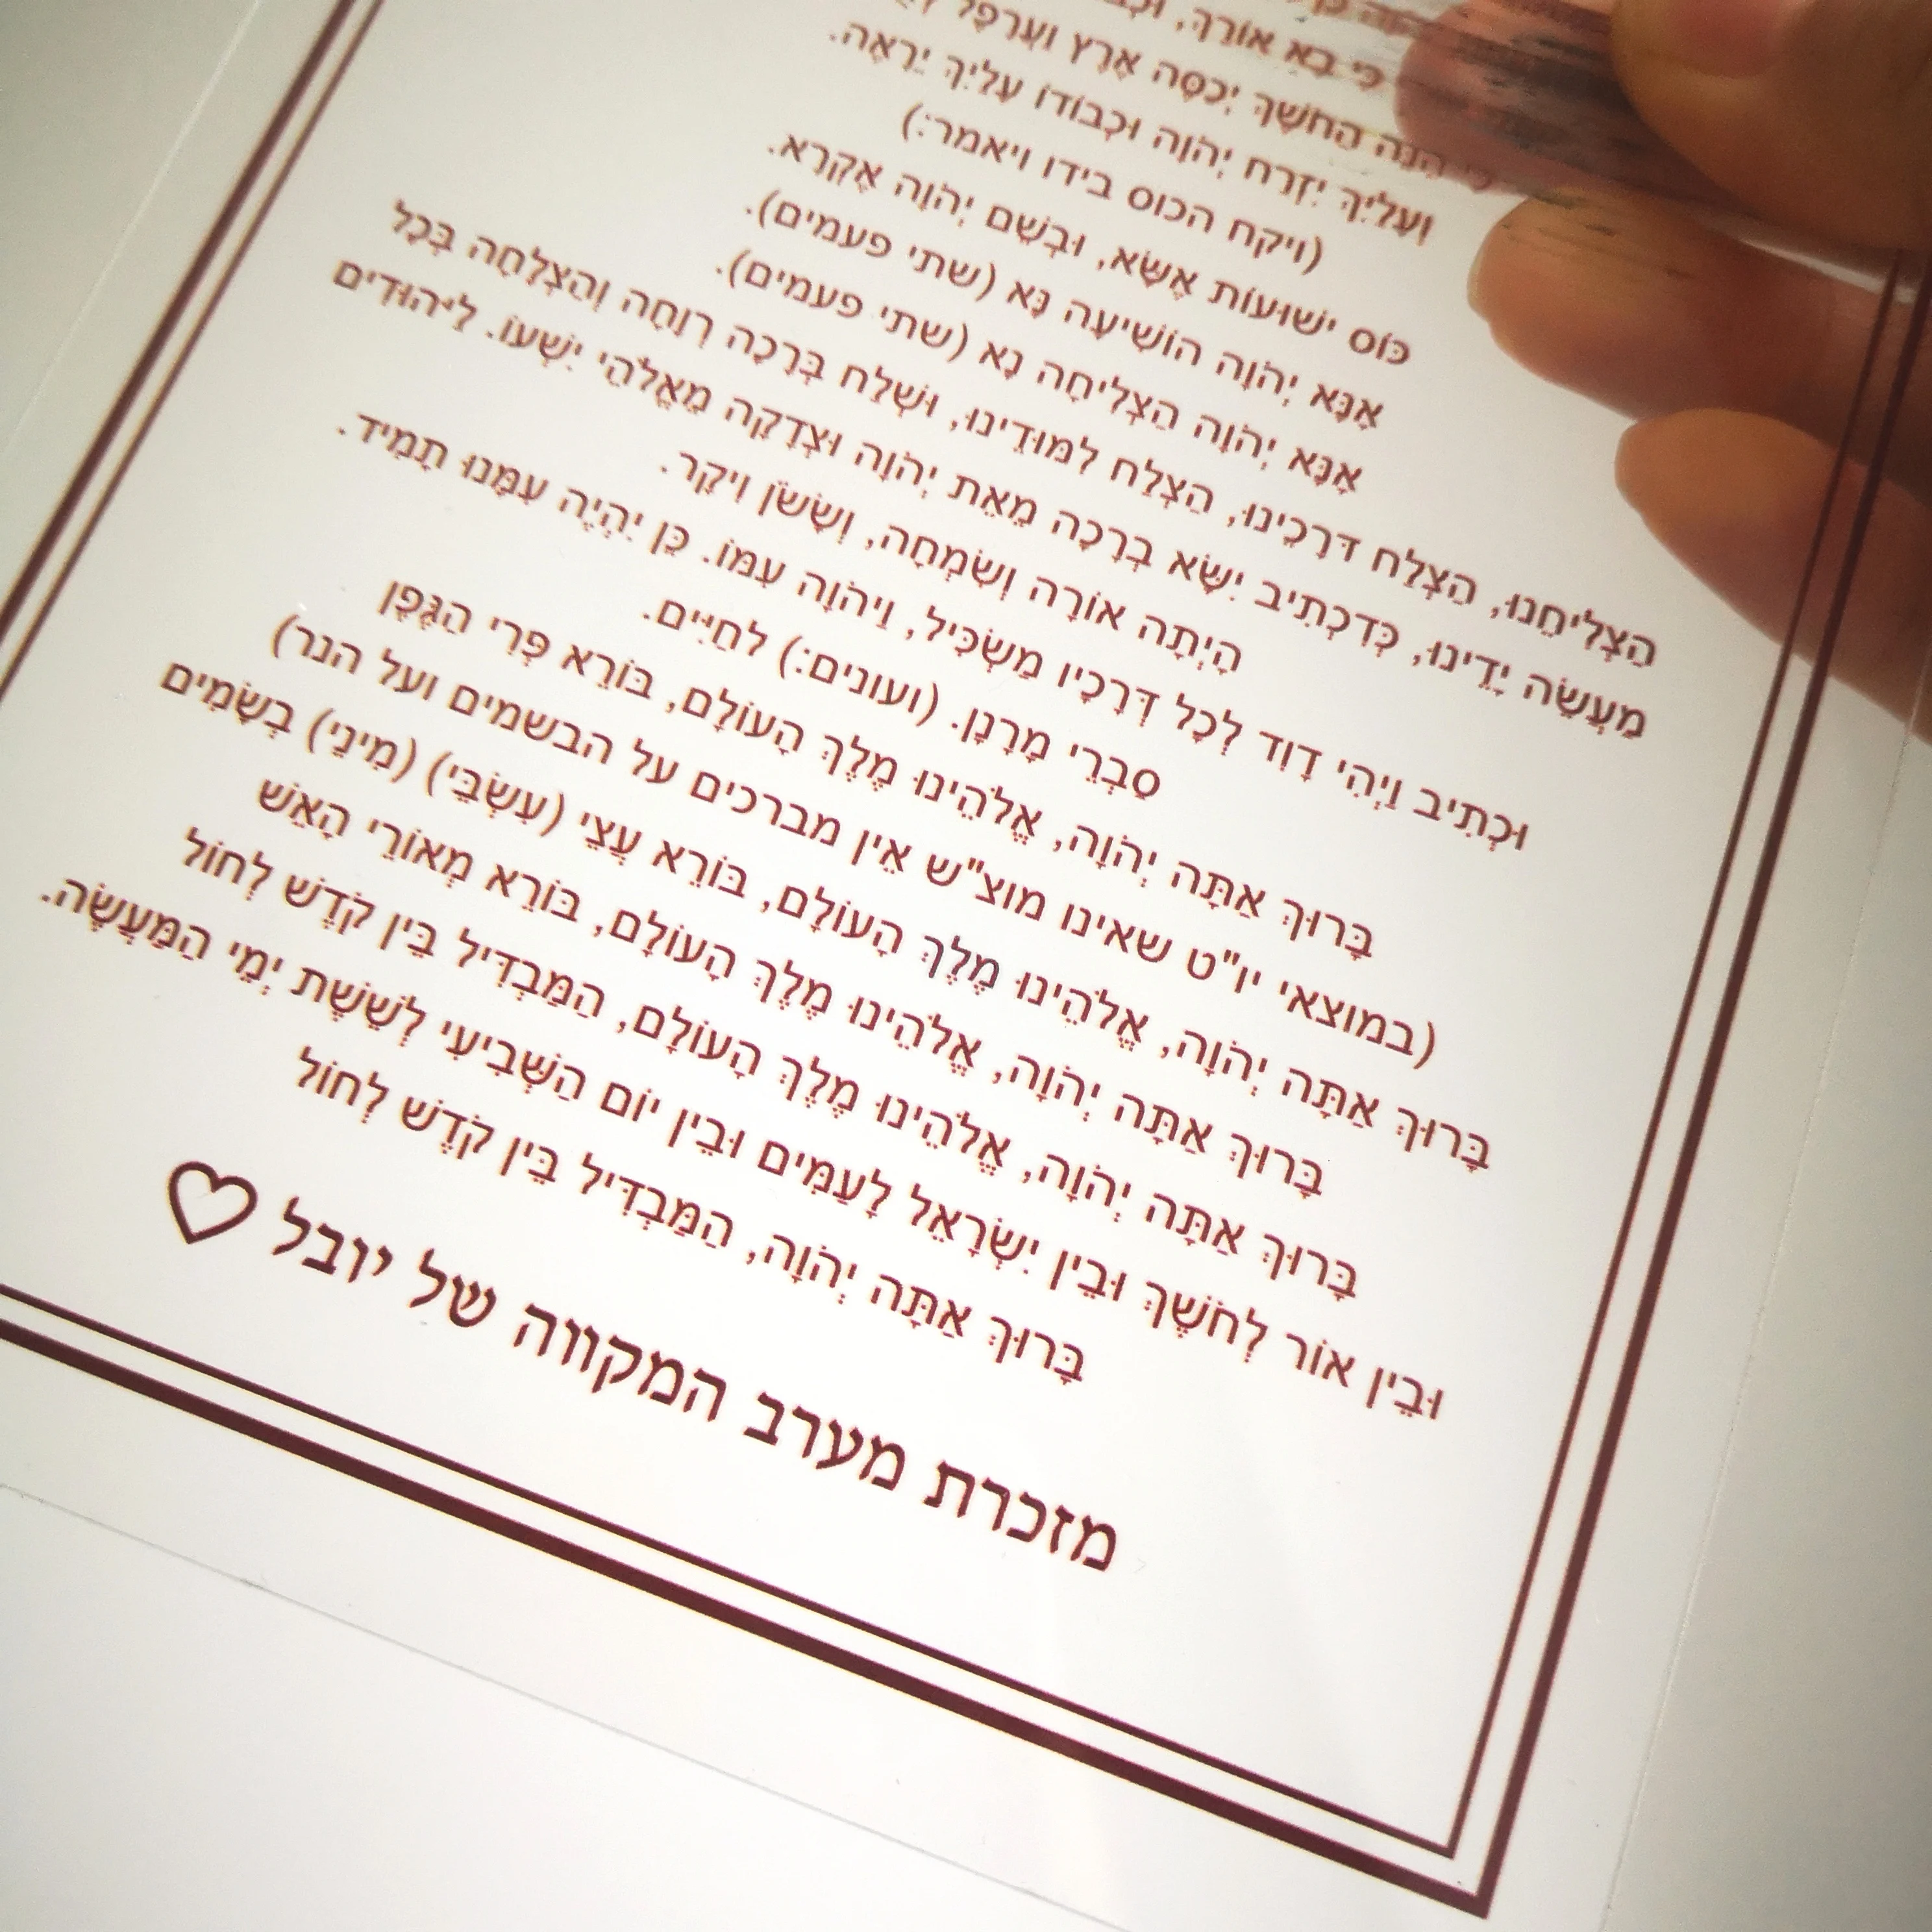 כִּי בָא אוֹרֵךְ,
הִנֵּה הַחֹשֶׁךְ יְכַסֶּה אֶרֶץ וַעֲרָפֶל
וְעָלַיִךְ יִזְרַח יְהֹוָה וּכְבוֹדוֹ עָלַיִךְ יֵרָאֶה.
(ויקח הכוס בידו ויאמר:)
כּוֹס יְשׁוּעוֹת אֶשָּׂא, וּבְשֵׁם יְהֹוָה אֶקְרָא.
אָנָּא יְהֹוָה הוֹשִׁיעָה נָּא (שתי פעמים).
אָנָּא יְהֹוָה הַצְלִיחָה נָא (שתי פעמים).
הַצְלִיחֵנוּ, הַצְלַח דְּרָכֵינוּ, הַצְלַח לִמּוּדֵינוּ, וּשְׁלַח בְּרָכָה רְוָחָה וְהַצְלָחָה בְּכָל
מַעֲשֵׂה יָדֵינוּ, כְּדִכְתִיב יִשָּׂא בְרָכָה מֵאֵת יְהֹוָה וּצְדָקָה מֵאֱלֹהֵי יִשְׁעוֹ. לַיְּהוּדִים
הָיְתָה אוֹרָה וְשִׂמְחָה, וְשָׂשֹׂן וִיקָר.
וּכְתִיב וַיְהִי דָוִד לְכָל דְּרָכָיו מַשְׂכִּיל, וַיהֹוָה עִמּוֹ. כֵּן יִהְיֶה עִמָּנוּ תָמִיד.
סַבְרֵי מָרָנָן. (ועונים:) לחַיִּים.
בָּרוּךְ אַתָּה יְהֹוָה, אֱלֹהֵינוּ מֶלֶךְ הָעוֹלָם, בּוֹרֵא פְּרִי הַגֶּפֶן
(במוצאי יו"ט שאינו מוצ"ש אין מברכים על הבשמים ועל הנר)
בָּרוּךְ אַתָּה יְהֹוָה, אֱלֹהֵינוּ מֶלֶךְ הָעוֹלָם, בּוֹרֵא עֲצֵי (עִשְׂבֵּי) (מִינֵי) בְשָׂמִים
בָּרוּךְ אַתָּה יְהֹוָה, אֱלֹהֵינוּ מֶלֶךְ הָעוֹלָם, בּוֹרֵא מְאוֹרֵי הָאֵשׁ
בָּרוּךְ אַתָּה יְהֹוָה, אֱלֹהֵינוּ מֶלֶךְ הָעוֹלָם, הַמַּבְדִּיל בֵּין קֹדֶשׁ לְחוֹל
וּבֵין אוֹר לְחֹשֶׁךְ וּבֵין יִשְׂרָאֵל לָעַמִּים וּבֵין יוֹם הַשְּׁבִיעִי לְשֵׁשֶׁת יְמֵי הַמַּעֲשֶׂה.
בָּרוּךְ אַתָּה יְהֹוָה, הַמַּבְדִּיל בֵּין קֹדֶשׁ לְחוֹל
מזכרת מערב המקווה של יובל ♡